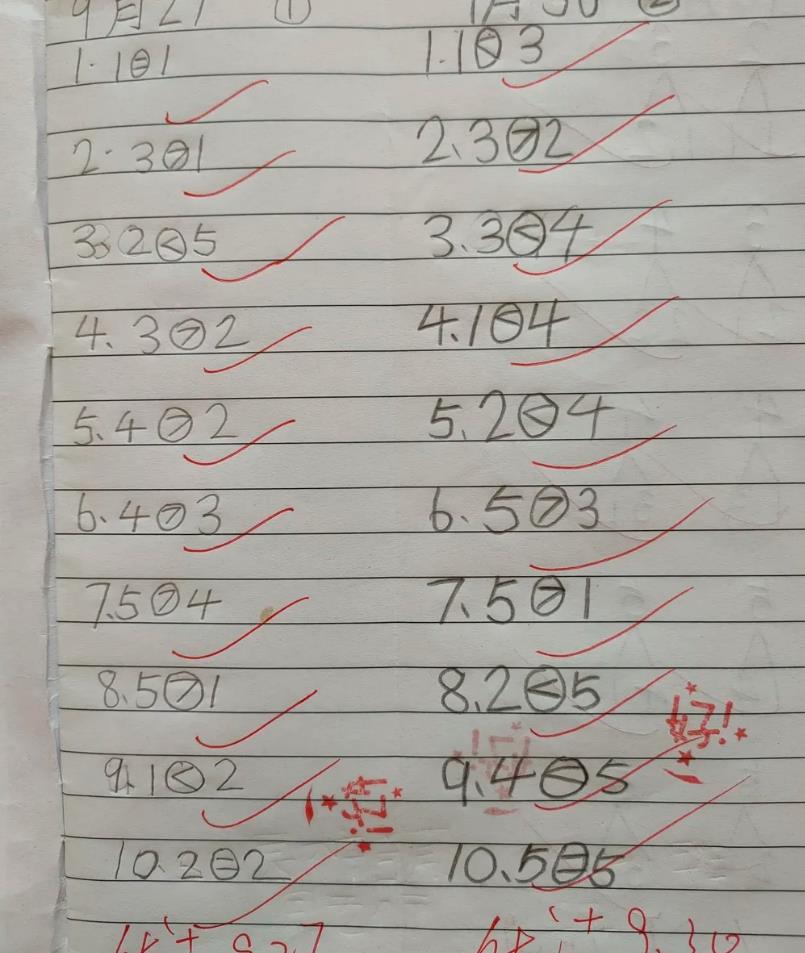 9月27 ①
1. 1⊜1
2. 3⧁1
3. 2⧀5
4. 3⧁2
5. 4⧁2
6. 4⧁3
7. 5⧁4
8. 5⧁1
9. 1⧀2
10. 2⊜2
好!
②
1. 1⧀3
2. 3⧁2
3. 3⧀4
4. 1⧀4
5. 2⧀4
6. 5⧁3
7. 5⧁1
8. 2⧀5
9. 4⧀5
10. 5⊜5
好!